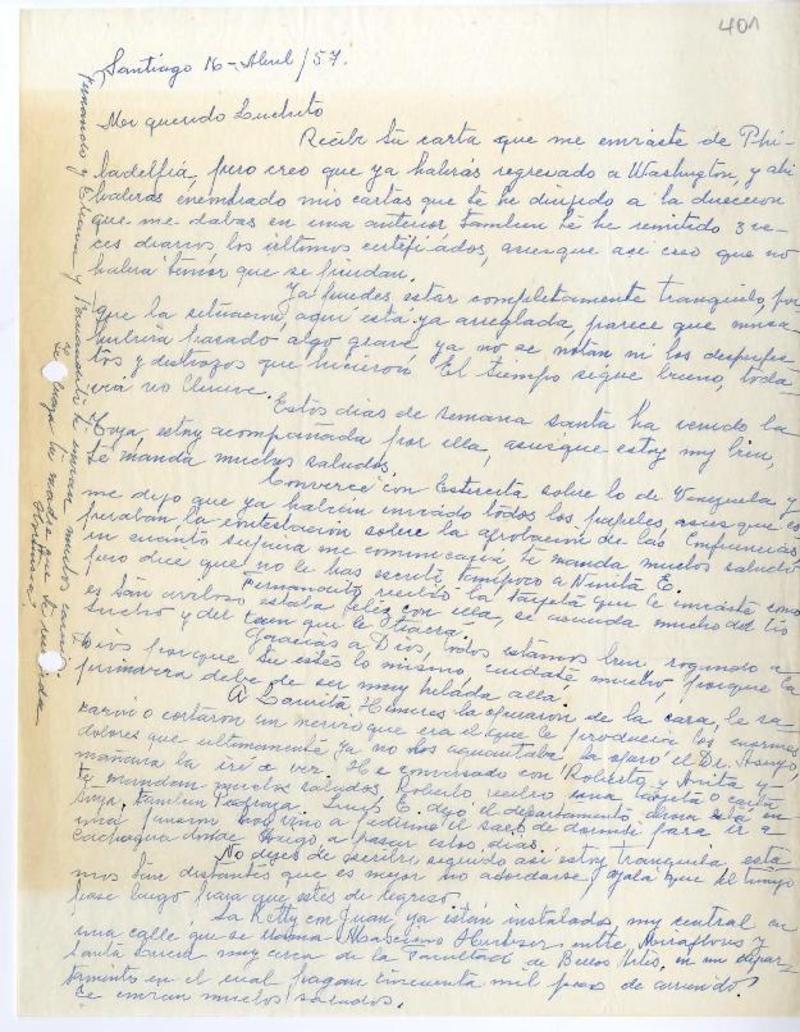 401
Santiago 16-Abril/57.
Mi querido Luchito
Recibi tu carta que me enviaste de Phi-
ladelfia, pero creo que ya habrás regresado a Washington, y ahi
habras encontrado mis cartas que te he dirijido a la direccion
que me dabas en una anterior, tambien te he remitido 3 ve-
ces diarios los ultimos certificados, asi es que asi creo que no
habrá temor que se pierdan.
Ya puedes estar completamente tranquilo, por-
que la situación, aquí está ya arreglada, parece que nunca
hubiera pasado algo grave ya no se notan ni los desperfec-
tos y destrozos que hicieron. El tiempo sigue bueno, toda-
via no llueve.
Estos dias de semana santa ha venido la
Yoya, estoy acompañada por ella, asi es que estoy muy bien,
te manda muchos saludos.
Conversé con Estercita sobre lo de Venezuela y
me dijo que ya habian enviado todos los papeles, asi es que es-
peraban la contestación sobre la aprobación de las Conferencias
en cuanto supiera me comunicaria, te manda muchos saludos
pero dice que no le has escrito, tampoco a Ninita E.
Fernandito recibió la tarjeta que le enviaste como
es tan estaba feliz con ella, se acuerda mucho del tio
Lucho y del que le traerá.
Gracias a Dios, todos estamos bien rogando a
Dios porque tu estés lo mismo cuidate mucho, porque la
primavera debe de ser muy helada allá.
A Laurita la operaron de la cara, le sa-
caron o cortaron un nervio que era el que le producia los enormes
dolores que ultimamente ya no los aguantaba, la operó el Dr. Asenjo,
mañana la iré a ver. He conversado con Roberto y Anita y
te mandan muchos saludos, Roberto recibio una tarjeta o carta
tuya, tambien E. dejó el departamento ahora está en
una pension hoy vino a pedirme el saco de dormir para ir a
Cachagua donde a pasar estos dias.
No dejes de escribir seguido asi estoy tranquila, esta-
mos tan distantes que es mejor no acordarse, ojala que el tiempo
pase luego para que estes de regreso.
La Ketty con Juan ya están instalados, muy central en
una calle que se llama entre Miraflores y
Santa Lucia muy cerca de la Facultad de Bellas Artes, en un depar-
tamento en el cual pagan cincuenta mil pesos de arriendo.
Te envian muchos saludos.
Fernando y Eliana y Fernandito te envian muchos cari-
ños y
tu madre que te
Hortensia